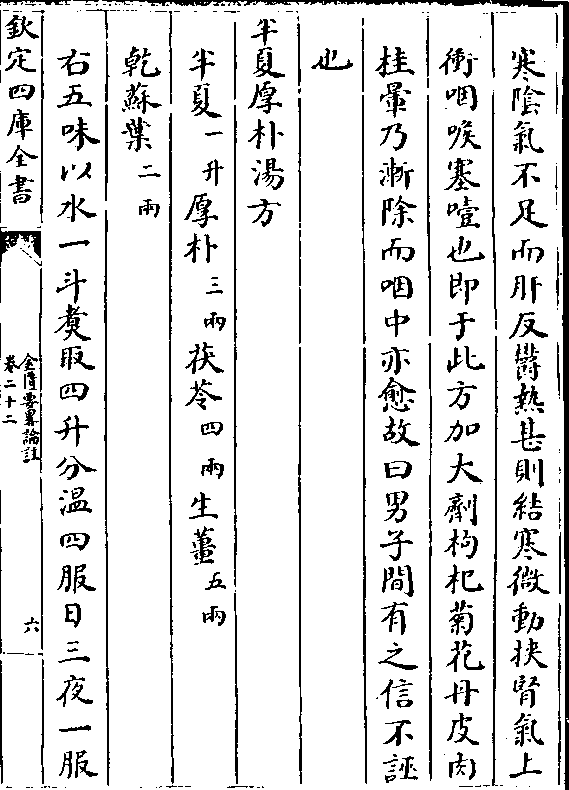 寒陰氣不足而肝反鬱熱甚則結寒微動挟腎氣上
衝咽喉塞噎也即于此方加大劑枸杞菊花丹皮肉
桂暈乃漸除而咽中亦愈故曰男子間有之信不誣
也
半夏厚朴湯方
半夏一升厚朴三兩茯苓四兩生薑五兩
乾蘇葉二兩
右五味以水一斗煑取四升分温四服日三夜一服
欽定四庫全書
金匱要畧論註
卷二十二
六